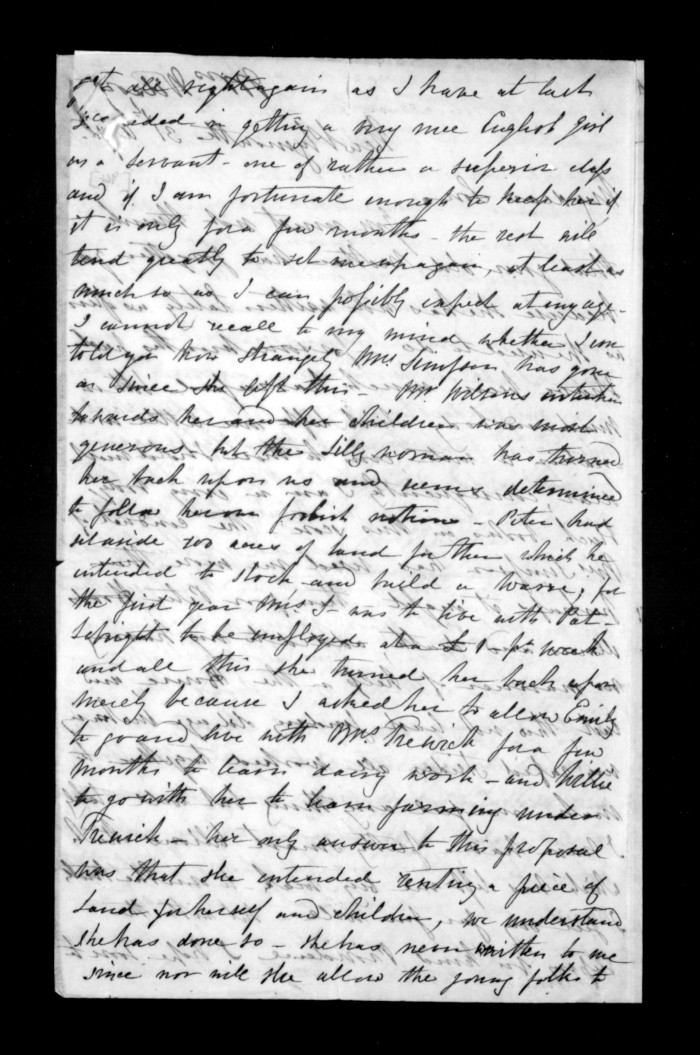 get all right again as I have at last
succeeded in getting a very nice English girl
as a servant - one of rather a superior class
and if I am fortunate enough to keep her if
it is only for a few months - the rest will
tend greatly to set me up again, at least as
much so as I can possibly expect at my age -
I cannot recall to my mind whether I ever
told you how strangely Mrs Simpson has gone
on since she left this - Mr Wilsons intention
towards her and her children was most
generous, but the silly woman has turned
her back upon us and seems determined
to follow her own foolish notions - Peter had
set aside 100 acres of land for them which he
intended to stock and build a Warre, for
the first year Mrs S - was to live with Pat -
to be employed at a £1 - pr week
and all this she turned her back upon
merely because I asked her to allow Emily
to go and live with Mrs Trewick for a few
months to learn dairy work - and Willie
to go with her to learn farming under
Trewick - her only answer to this proposal
was that she intended renting a piece of
Land for herself and children, we understand
she has done so - she has never written to me
since nor will she allow the young folks to